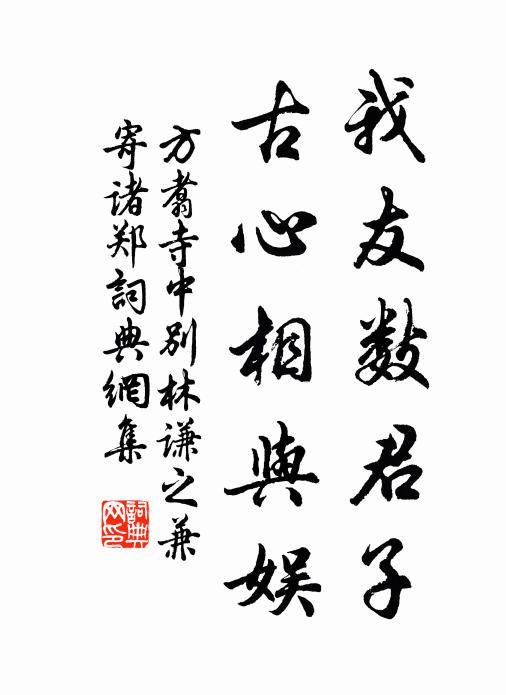 我友数君子
古心相與娱
方翥寺中别林谦之兼
寄诸郑詞典網集
詞典網印